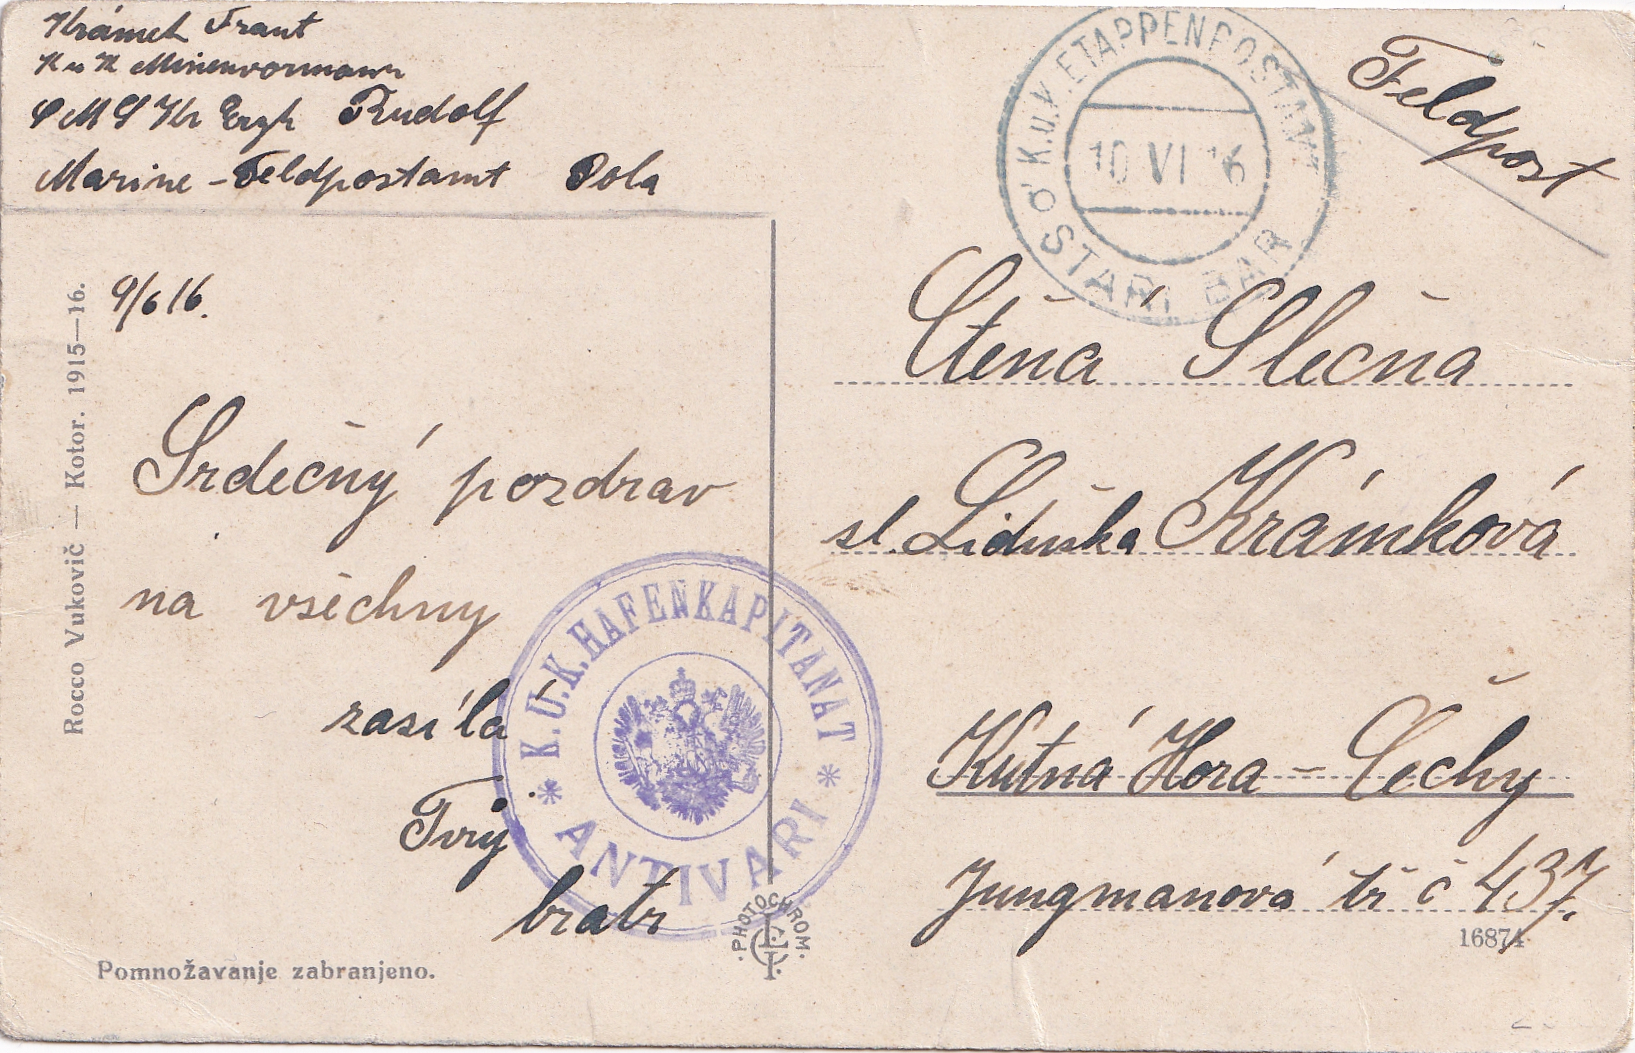 Krámek Frant
K u K Minenvormann
S M S Kr Erzh Rudolf
Marine-Feldpostamt Pola
K.u.K. ETAPPENPOSTAMT
10 VI 16
STARI BAR
Feldpost
9/6 16.
Srdečný pozdrav
na všechny
zasílá
Tvůj
bratr
Ctěná Slečna
sl. Liduška Krámková
Kutná Hora – Čechy
Jungmanová tř č 437.
K.U.K. HAFENKAPITANAT
* ANTIVARI *
Rocco Vukovič — Kotor. 1915—16.
PHOTOCHROM.
16874
Pomnožavanje zabranjeno.